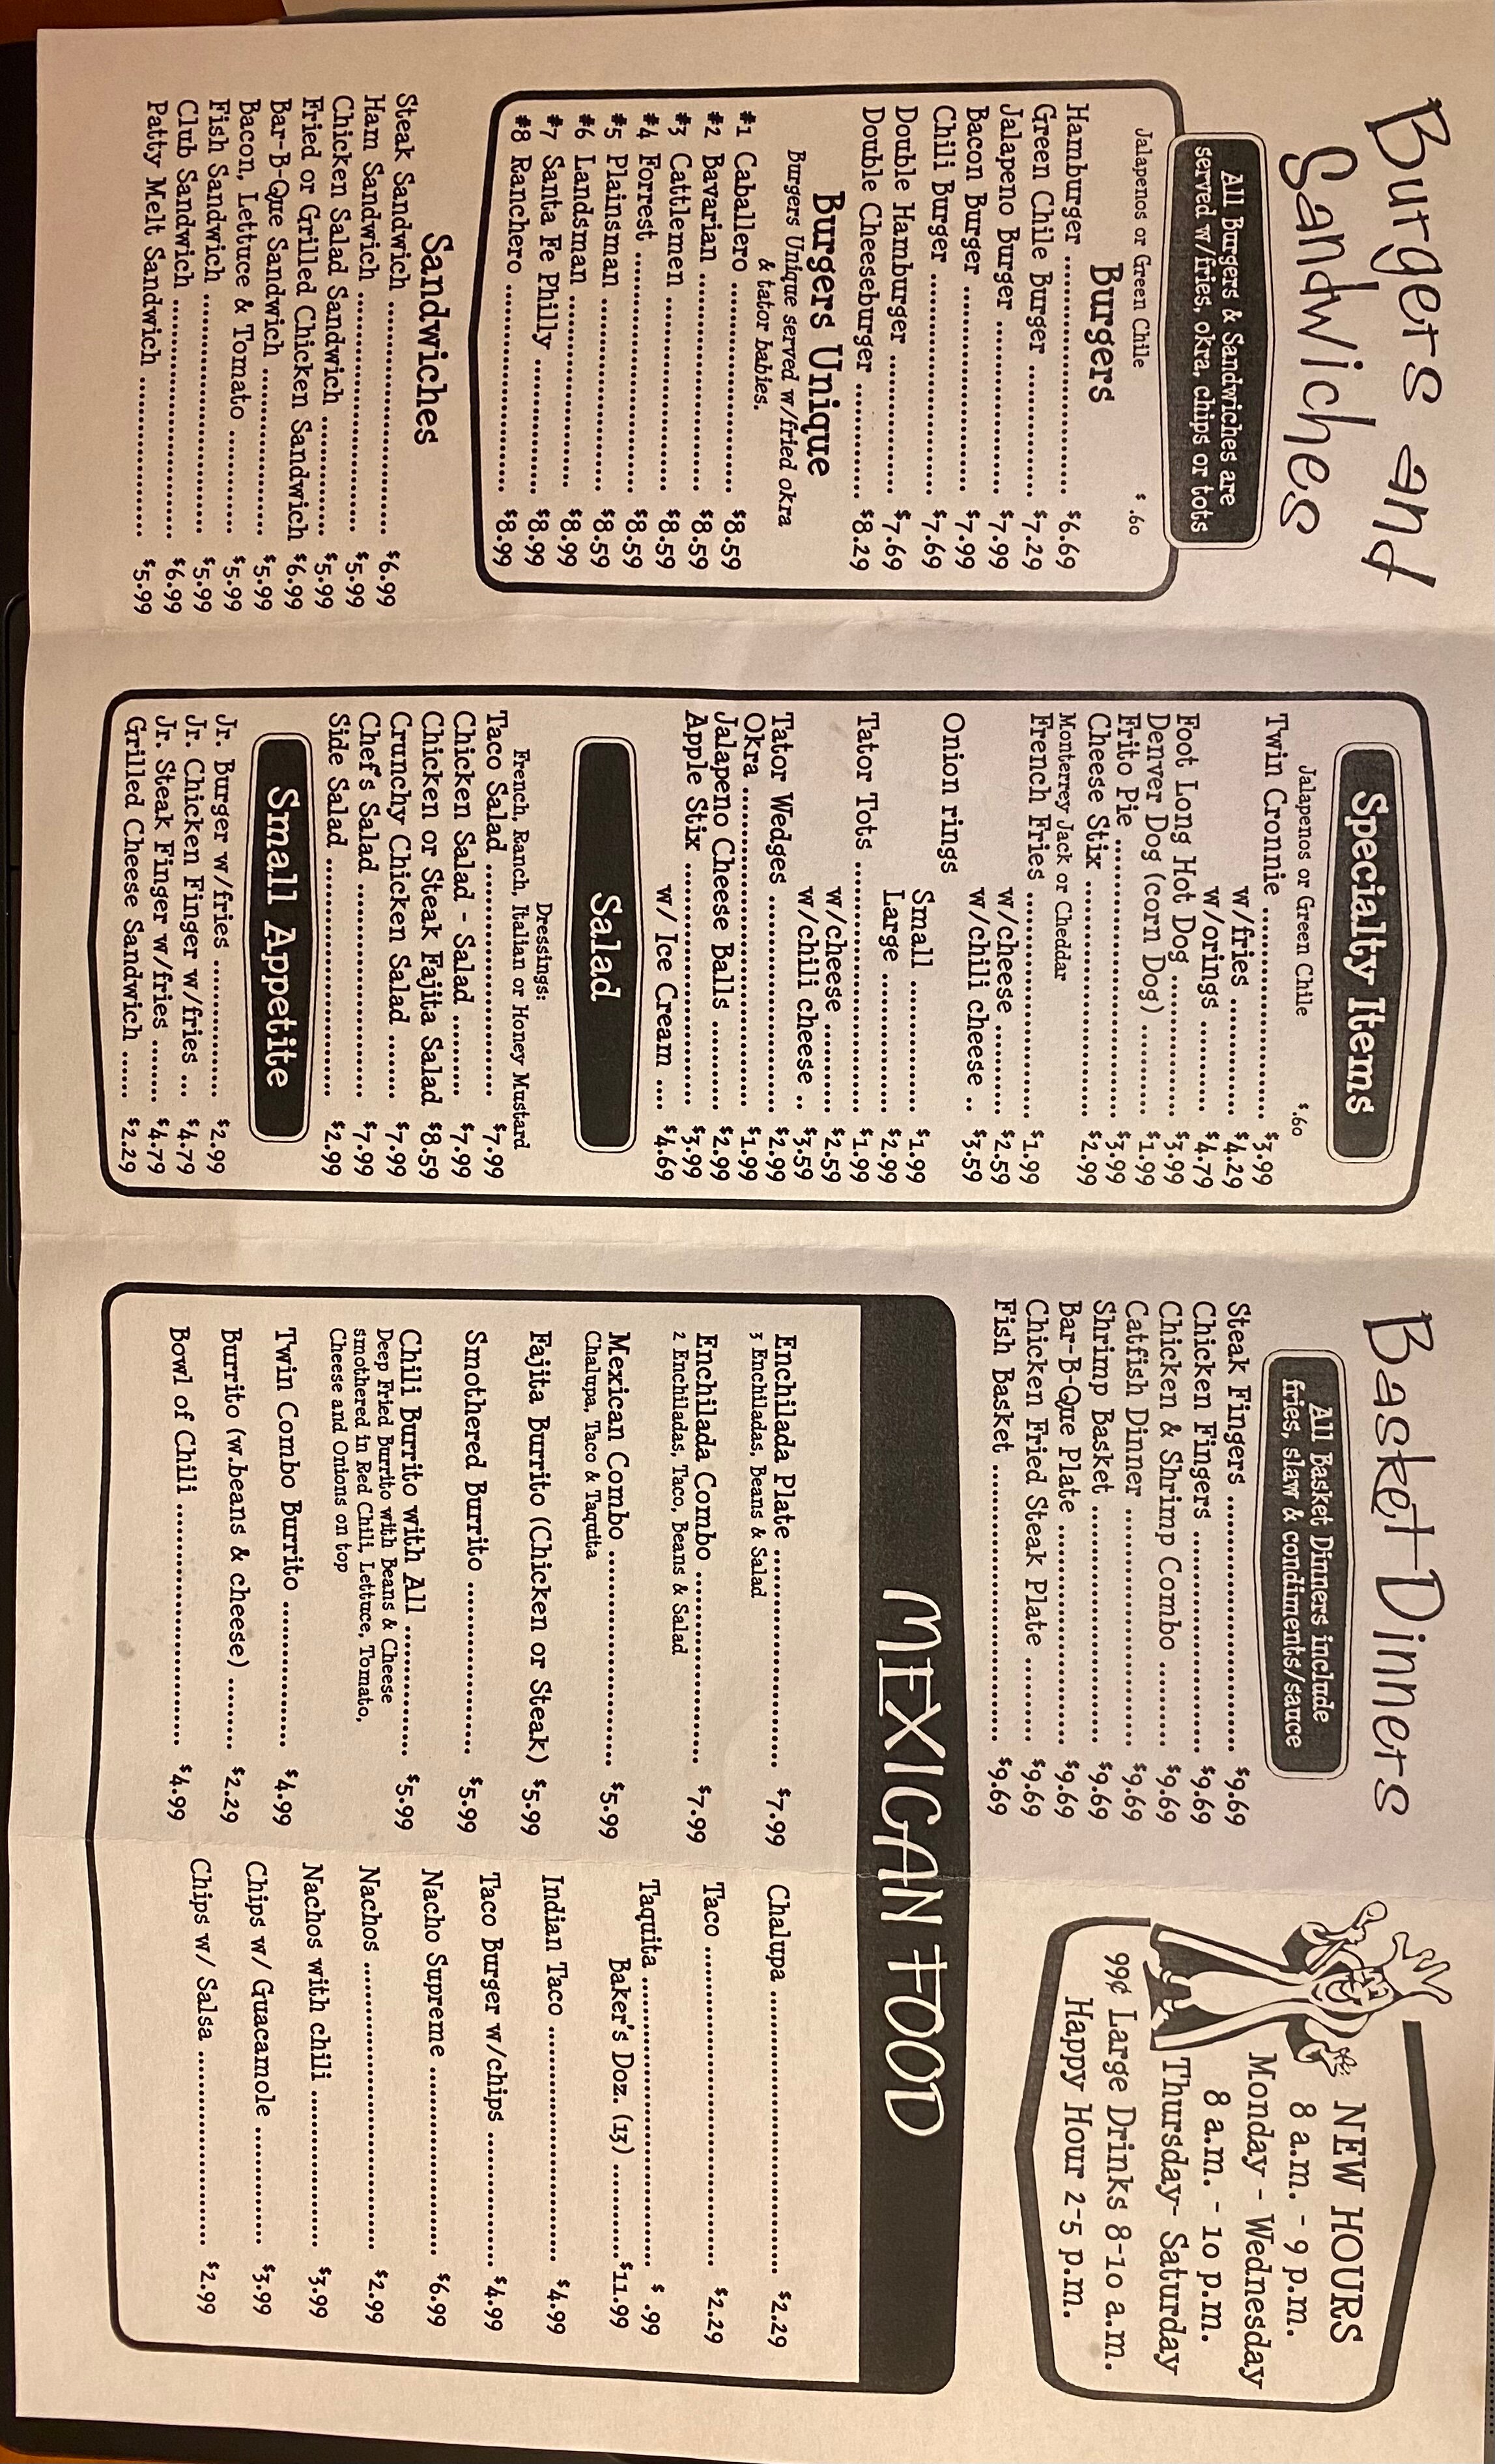 Burgers and
Sandwiches
All Burgers & Sandwiches are
served w/fries, okra, chips or tots
Jalapenos or Green Chile $ .60
Burgers
Hamburger ........................ $6.69
Green Chile Burger ............ $7.29
Jalapeno Burger ................ $7.99
Bacon Burger .................... $7.99
Chili Burger ...................... $7.69
Double Hamburger ............ $7.69
Double Cheeseburger ......... $8.29
Burgers Unique
Burgers Unique served w/fried okra
& tator babies.
#1 Caballero ..................... $8.59
#2 Bavarian ..................... $8.59
#3 Cattlemen ................... $8.59
#4 Forrest ....................... $8.59
#5 Plainsman ................... $8.59
#6 Landsman ................... $8.99
#7 Santa Fe Philly ............. $8.99
#8 Ranchero .................... $8.99
Sandwiches
Steak Sandwich ................. $6.99
Ham Sandwich .................. $5.99
Chicken Salad Sandwich ...... $5.99
Fried or Grilled Chicken Sandwich $6.99
Bar-B-Que Sandwich ........... $5.99
Bacon, Lettuce & Tomato ..... $5.99
Fish Sandwich ................... $5.99
Club Sandwich ................... $6.99
Patty Melt Sandwich ........... $5.99
Specialty Items
Jalapenos or Green Chile $.60
Twin Cronnie ..................... $3.99
w/fries ............ $4.29
w/orings ......... $4.79
Foot Long Hot Dog ............. $3.99
Denver Dog (corn Dog) ........ $1.99
Frito Pie ........................... $3.99
Cheese Stix ....................... $2.99
Monterrey Jack or Cheddar
French Fries ...................... $1.99
w/cheese ......... $2.59
w/chili cheese .. $3.59
Onion rings
Small ............. $1.99
Large .............. $2.99
Tator Tots ......................... $1.99
w/cheese ......... $2.59
w/chili cheese .. $3.59
Tator Wedges .................... $2.99
Okra ................................ $1.99
Jalapeno Cheese Balls ......... $2.99
Apple Stix ......................... $3.99
w/ Ice Cream .... $4.69
Salad
Dressings:
French, Ranch, Italian or Honey Mustard
Taco Salad ........................ $7.99
Chicken Salad - Salad ......... $7.99
Chicken or Steak Fajita Salad $8.59
Crunchy Chicken Salad ....... $7.99
Chef's Salad ...................... $7.99
Side Salad ......................... $2.99
Small Appetite
Jr. Burger w/fries .............. $2.99
Jr. Chicken Finger w/fries ... $4.79
Jr. Steak Finger w/fries ....... $4.79
Grilled Cheese Sandwich ...... $2.29
Basket Dinners
All Basket Dinners include
fries, slaw & condiments/sauce
Steak Fingers .................... $9.69
Chicken Fingers ................. $9.69
Chicken & Shrimp Combo ..... $9.69
Catfish Dinner ................... $9.69
Shrimp Basket ................... $9.69
Bar-B-Que Plate ................. $9.69
Chicken Fried Steak Plate .... $9.69
Fish Basket ....................... $9.69
NEW HOURS
8 a.m. - 9 p.m.
Monday - Wednesday
8 a.m. - 10 p.m.
Thursday- Saturday
99¢ Large Drinks 8-10 a.m.
Happy Hour 2-5 p.m.
MEXICAN FOOD
Enchilada Plate .................. $7.99
3 Enchiladas, Beans & Salad
Enchilada Combo ................ $7.99
2 Enchiladas, Taco, Beans & Salad
Mexican Combo .................. $5.99
Chalupa, Taco & Taquita
Fajita Burrito (Chicken or Steak) $5.99
Smothered Burrito .............. $5.99
Chili Burrito with All ........... $5.99
Deep Fried Burrito with Beans & Cheese
smothered in Red Chili, Lettuce, Tomato,
Cheese and Onions on top
Twin Combo Burrito ............ $4.99
Burrito (w.beans & cheese) ... $2.29
Bowl of Chili ...................... $4.99
Chalupa ............................ $2.29
Taco ................................. $2.29
Taquita ............................. $ .99
Baker's Doz. (13) ...........$11.99
Indian Taco ....................... $4.99
Taco Burger w/chips ........... $4.99
Nacho Supreme .................. $6.99
Nachos ............................. $2.99
Nachos with chili ................ $3.99
Chips w/ Guacamole ............ $3.99
Chips w/ Salsa ................... $2.99